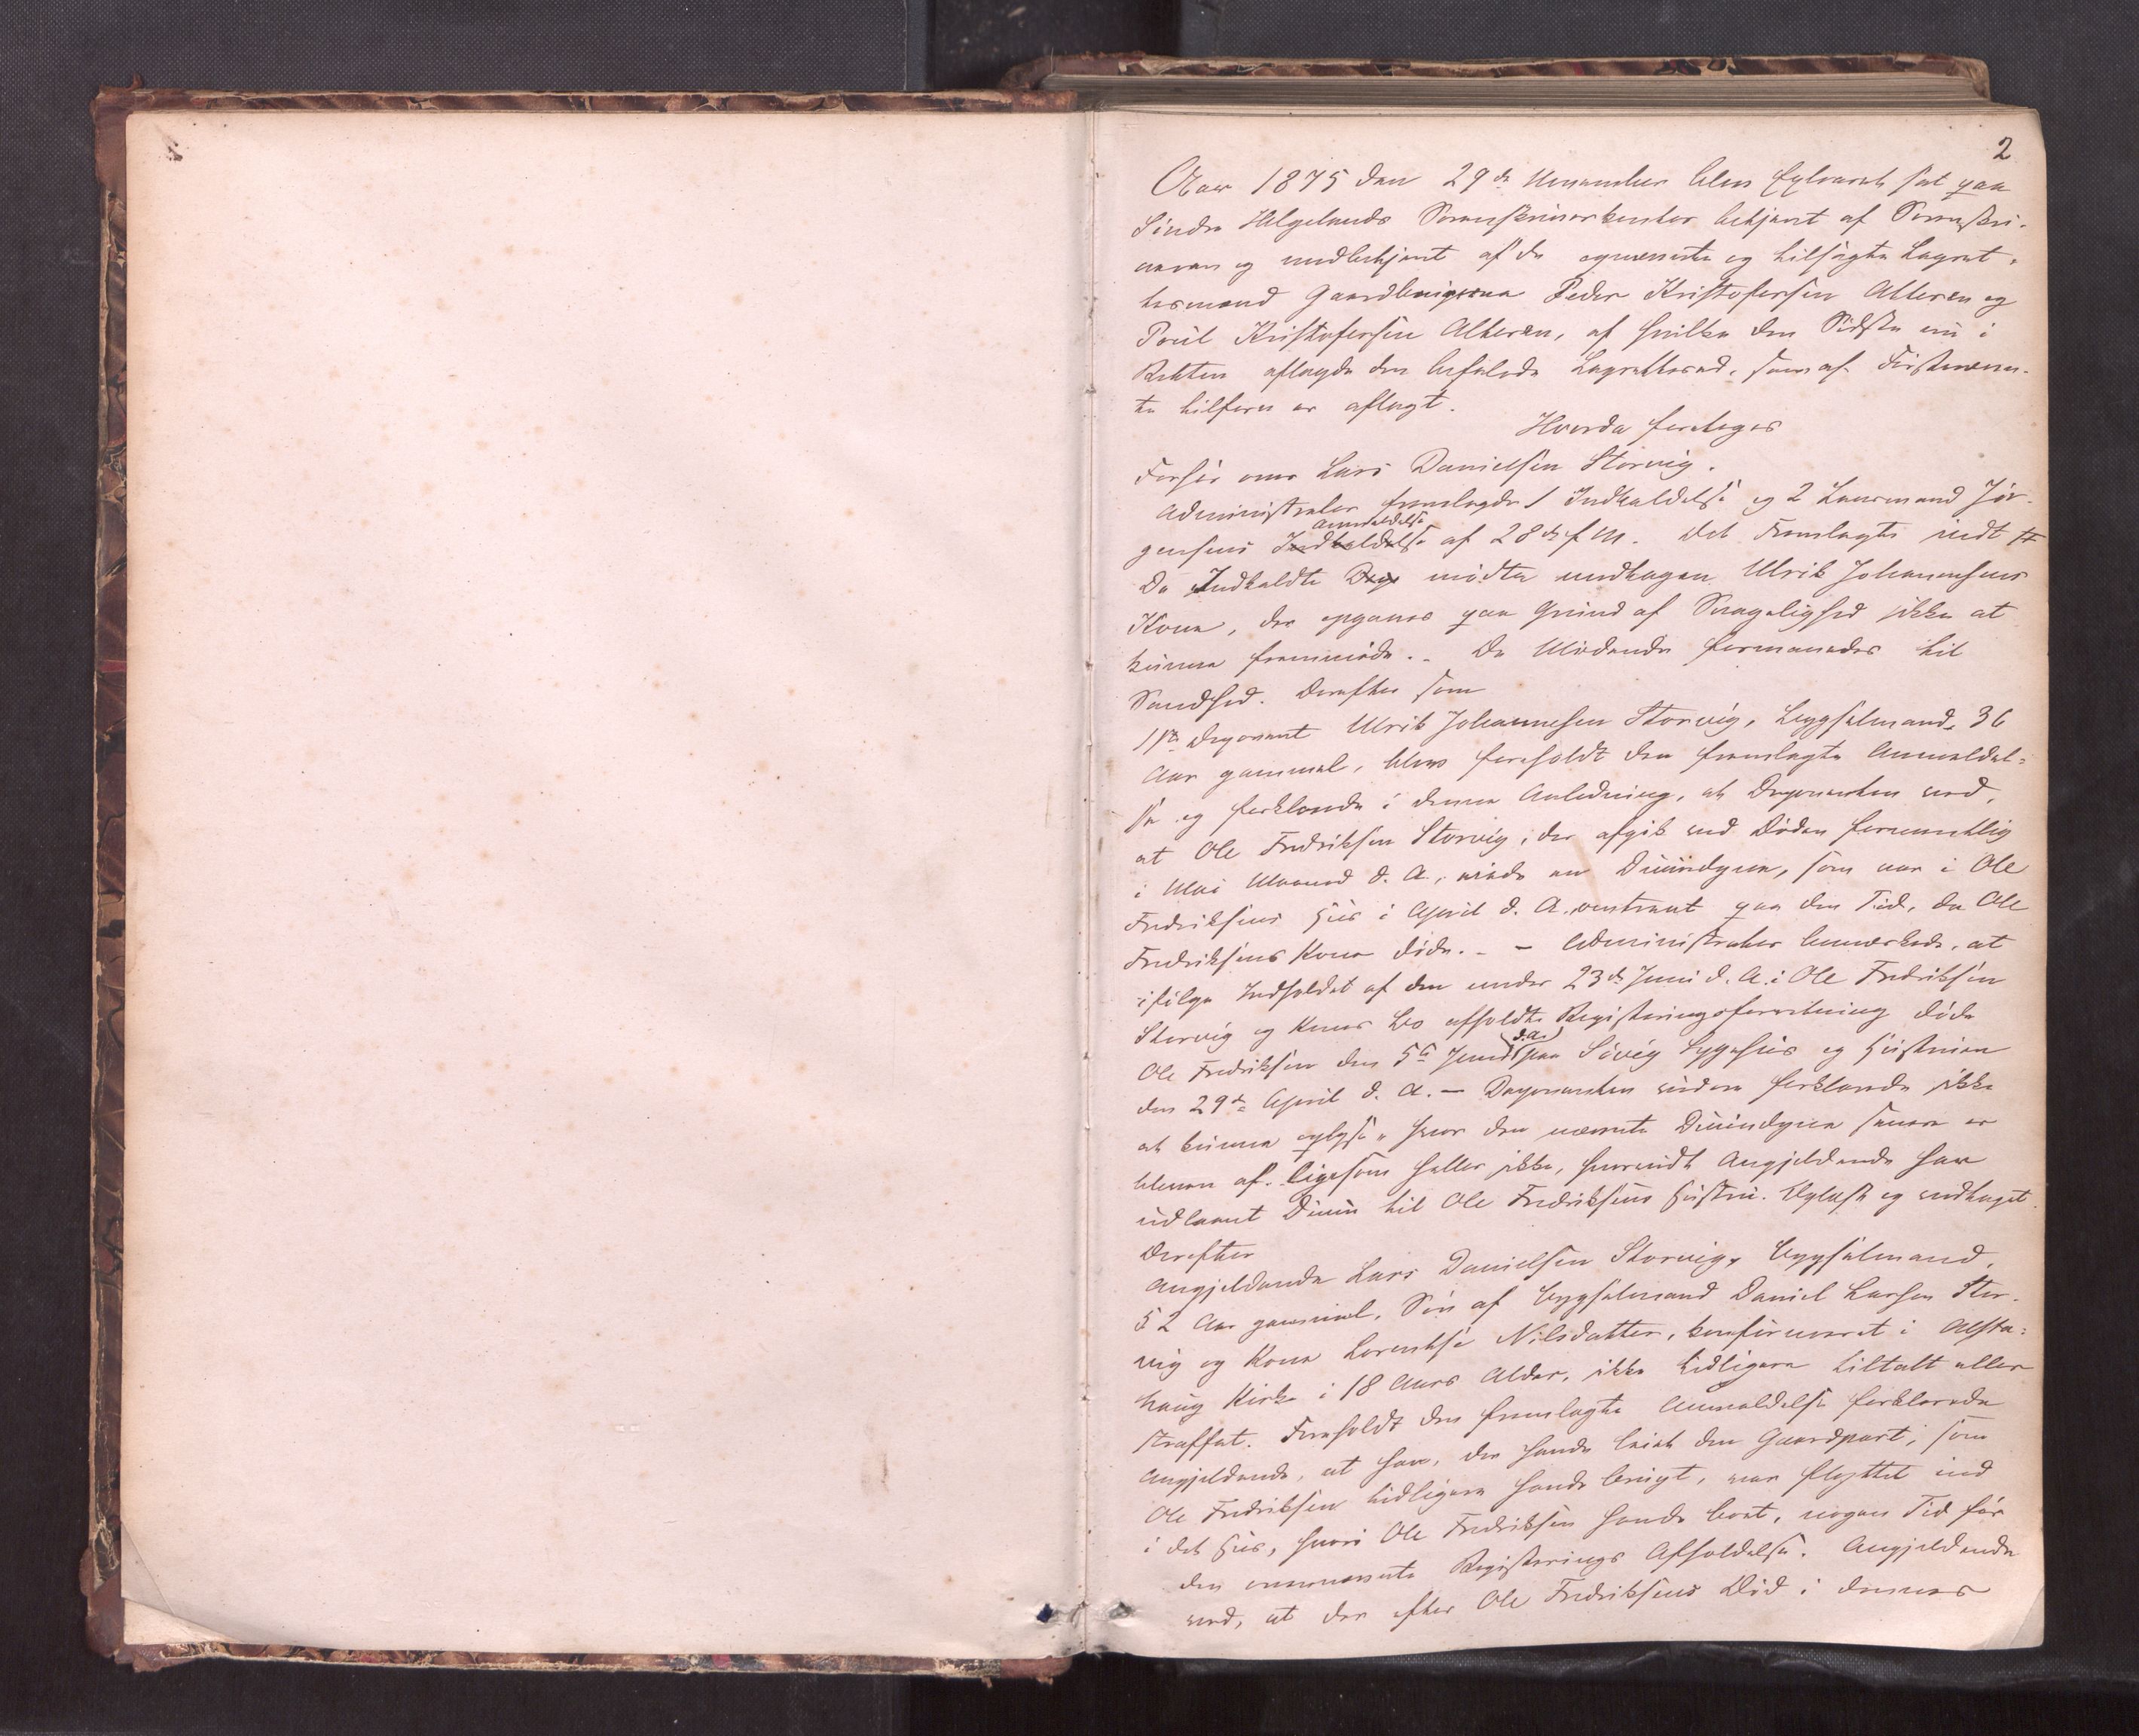 2
Aar 1875 den 29de November blev Extraret sat paa
Söndre Helgelands Sorenskriverkontor betjent af Sorenskri-
veren og medbetjent af de opnævnte og tilsagte Lagret-
tesmænd Gaardbrugerne Peder Kristofersen Alteren og
Poul Kristofersen Alteren, af hvilke den Sidste nu i
Retten aflagde den befalede Lagretteed, som af Förstnævn-
te tilforn er aflagt.
Hvorda foretoges
Forhör over Lars Danielsen Storvig.
Administrator fremlagde 1 Indkaldelse og 2 Lensmand Jör-
gensens Indkaldelse Anmeldelse af 28de f M. Det Fremlagte indt
De Indkaldte mödte undtagen Ulrik Johannesens
Kone, der opgaves paa Grund af Svagelighed ikke at
kunne fremmöde. - De Mödende formanedes til
Sandhed. Derefter som
1ste Deponent Ulrik Johannesen Storvig, Bygselmand, 36
Aar gammel, blev foreholdt den fremlagte Anmeldel-
se og forklarede i denne Anledning, at Deponenten ved,
at Ole Fredriksen Storvig, der afgik ved Döden formentlig
i Mai Maaned d. A., eiede en Duundyne, som var i Ole
Fredriksens Huus i April d. A. omtrent paa den Tid, da Ole
Fredriksens Kone döde. - - Administrator bemærkede, at
ifölge Indholdet af den under 23de Juni d. A. i Ole Fredriksen
Storvig og Kones Bo afholdte Registreringsforretning döde
Ole Fredriksen den 5te Juni d. A. paa Sövig Sygehus og Hustruen
den 29de April d. A. - Deponenten videre forklarede ikke
at kunne oplyse, hvor den nævnte Duundyne senere er
bleven af, ligesom heller ikke, hvorvidt Angjeldende har
udlaant Duun til Ole Fredriksens Hustru. Oplæst og vedtaget.
Derefter
Angjeldende Lars Danielsen Storvig, Bygselmand,
52 Aar gammel, Sön af Bygselmand Daniel Larsen Stor-
vig og Kone Lorentse Nilsdatter, konfirmeret i Alsta-
haug Kirke i 18 Aars Alder, ikke tidligere tiltalt eller
straffet. Foreholdt den fremlagte Anmeldelse forklarede
Angjeldende, at han, der havde leiet den Gaardpart, som
Ole Fredriksen tidligere havde brugt, var flyttet ind
i det Huus, hvori Ole Fredriksen havde boet, nogen Tid för
den ommeldte Registrerings Afholdelse. Angjeldende
ved, at der efter Ole Fredriksens Död i dennes